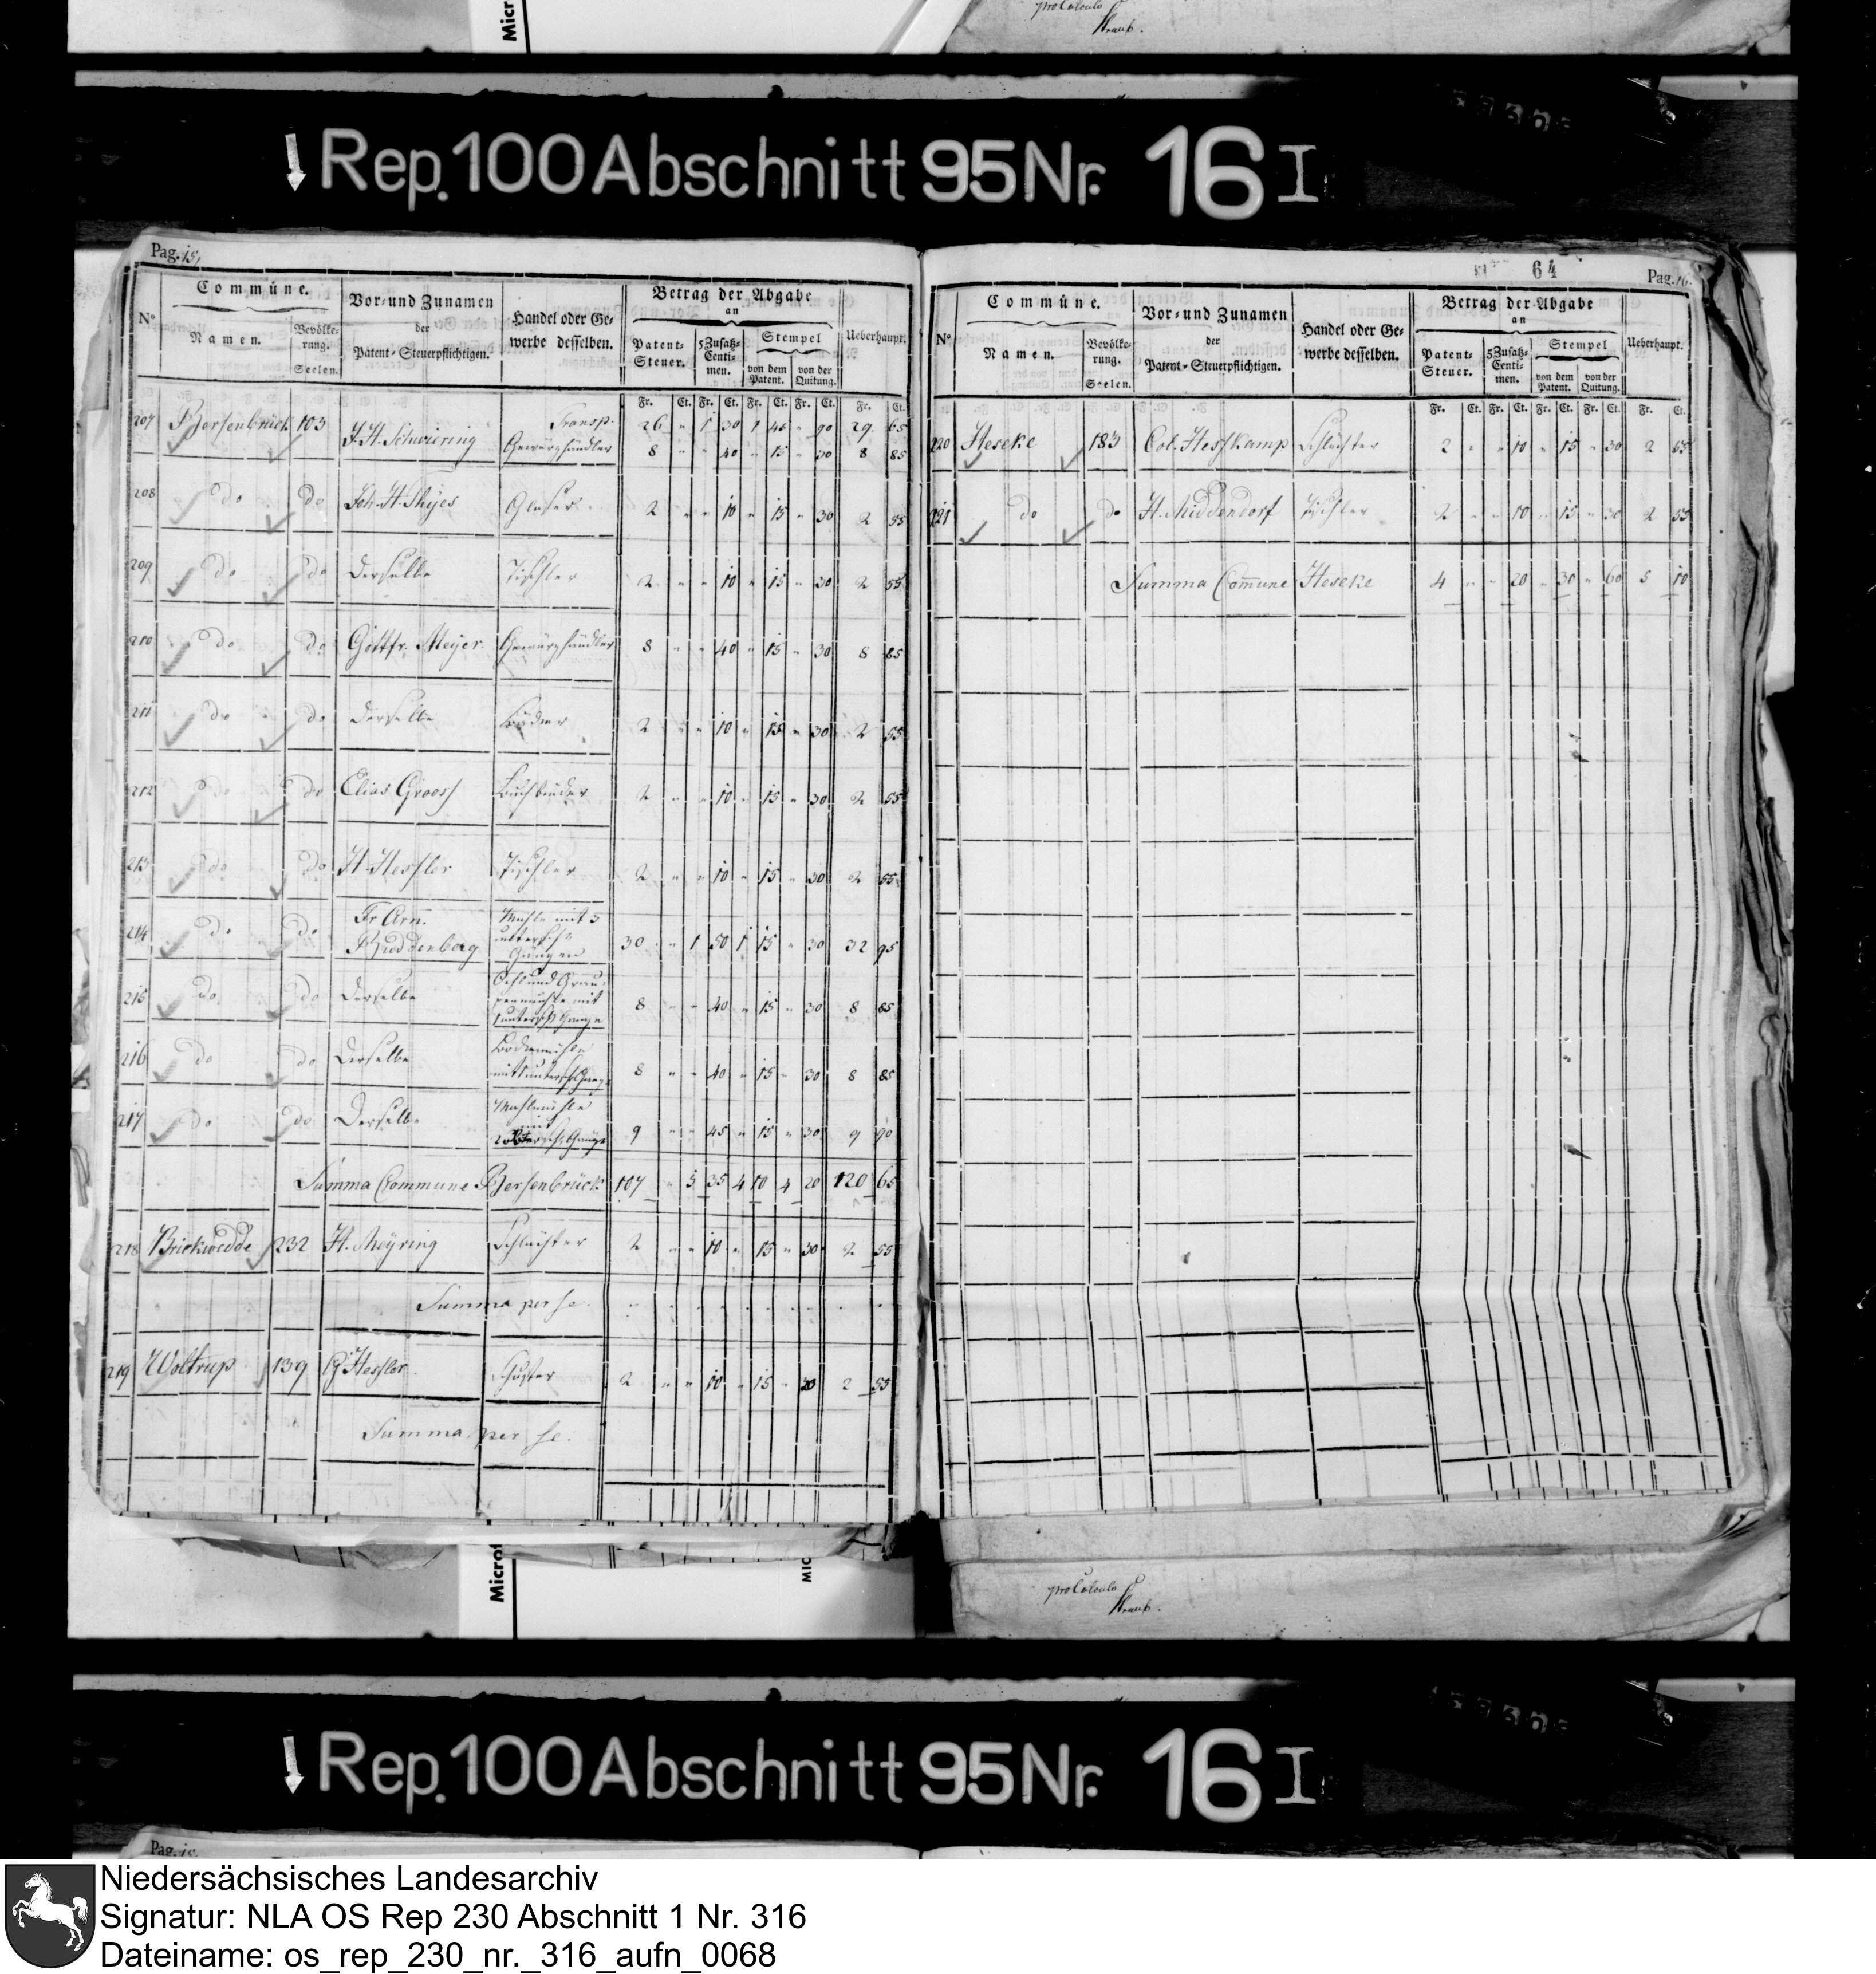 Micr
pro Calculo
Rep. 100 Abschnitt 95 Nr. 16 I
Pag. 15,
Commüne.
Vor- und Zunamen
der
Patent-Steuerpflichtigen.
Handel oder Ge-
werbe desselben.
Betrag der Abgabe
an
N°
Namen.
Bevölke-
rung.
Seelen.
Patent-
Steuer.
5 Zusatz-
Centi-
men.
Stempel
von dem
Patent.
von der
Quitung.
Ueberhaupt.
Fr. Ct. Fr. Ct. Fr. Ct. Fr. Ct. Fr. Ct.
Transp. 26 " 1 30 1 45 " 90 29 65
207 Bersenbrück 103 J. H. Schwiring Gewürzhändler 8 " " 40 " 15 " 30 8 85
208 do do Joh. H. Thyes Glaser 2 " " 10 " 15 " 30 2 55
209 do do Derselbe Tischler 2 " " 10 " 15 " 30 2 55
210 do do Gottfr. Meyer Gewürzhändler 8 " " 40 " 15 " 30 8 85
211 do do Derselbe 2 " " 10 " 15 " 30 2 55
212 do do Elias Grooss Buchbinder 2 " " 10 " 15 " 30 2 55
213 do do H. Hessler Tischler 2 " " 10 " 15 " 30 2 55
214 do do Fr. Arn.
Buddenberg
Mühle mit 3
unterschl.
Gängen
30 " 1 50 1 15 " 30 32 95
215 do do Derselbe
Oehl und Grau-
penmühle mit
1 unterschl. Gange
8 " " 40 " 15 " 30 8 85
216 do do Derselbe
Bockemühle
mit 1 unterschl. Gang
8 " " 40 " 15 " 30 8 85
217 do do Derselbe
Mahlmühle
mit
Gänge
9 " " 45 " 15 " 30 9 90
Summa Commune Bersenbrück 107 " 5 35 4 10 4 20 120 65
218 Brickwedde 232 H. Meyring Schlächter 2 " " 10 " 15 " 30 2 55
Summa per se.
219 Woltrup 139 G. Hessler Schuster 2 " " 10 " 15 " 30 2 55
Summa per se.
64
Pag. 16.
Commüne.
Vor- und Zunamen
der
Patent-Steuerpflichtigen.
Handel oder Ge-
werbe desselben.
Betrag der Abgabe
an
N°
Namen.
Bevölke-
rung.
Seelen.
Patent-
Steuer.
5 Zusatz-
Centi-
men.
Stempel
von dem
Patent.
von der
Quitung.
Ueberhaupt.
Fr. Ct. Fr. Ct. Fr. Ct. Fr. Ct. Fr. Ct.
220 Heseke 183 Col. Hesskamp Schlächter 2 " " 10 " 15 " 30 2 55
221 do do H. Middendorf Tischler 2 " " 10 " 15 " 30 2 55
Summa Com̄une Heseke 4 " " 20 " 30 " 60 5 10
Microf
MIC
pro Calculo
Rep. 100 Abschnitt 95 Nr. 16 I
Pag. 15.
Niedersächsisches Landesarchiv
Signatur: NLA OS Rep 230 Abschnitt 1 Nr. 316
Dateiname: os_rep_230_nr._316_aufn_0068